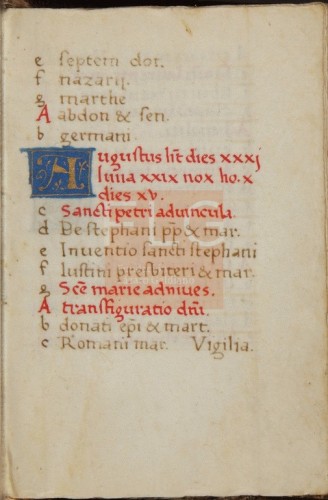 e septem dor.
f nazarij.
g marthe
A abdon & sen.
b germani.
Augustus ht dies xxxj
luna xxix nox ho. x
dies xv.
c Sancti petri advincula.
d De stephani pp & mar.
e Inventio sancti stephani
f Iustini presbiteri & mar.
g Scē marie adnives.
A transfiguratio dnī.
b donati epī & mart.
c Romani mar. Vigilia.